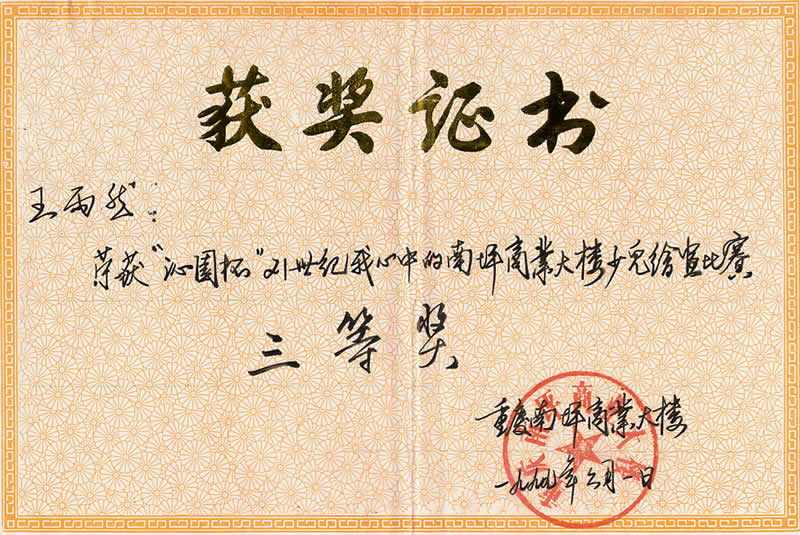 获奖证书
王雨然:
荣获"沁园杯"21世纪我心中的南坪商业大楼少儿绘画比赛
三等奖
重庆南坪商业大楼
一九九九年六月一日